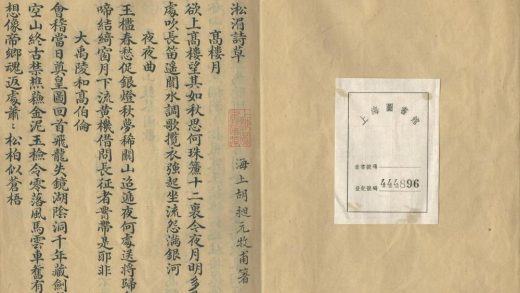 淞湄詩草
海上胡昶元牧甫箸
高樓月
欲上高樓望其如秋思何珠簾十二裏今夜月明多
處吹長笛遥聞水調歌攬衣強起坐流怨滿銀河
夜夜曲
玉櫳春愁促銀燈秋夢稀關山迢遞夜何處送將歸
啼結綺窗月下流黃機借問長征者帶是耶非
大禹陵和高伯倫
會稽當日奠皇圖回首飛龍失鏡湖陰洞千年藏劍
空山終古禁樵蘇金泥玉檢今零落風馬雲車奮有
想像帝鄉魂返處蕭〻松柏似蒼梧
圖書
登記號碼 444896